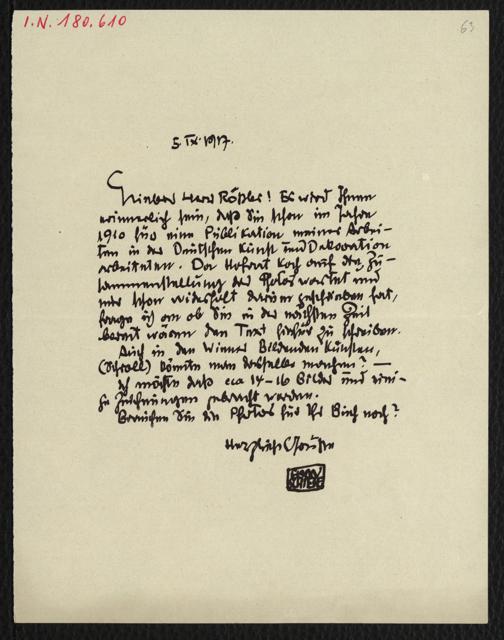 I.N. 180.610
63
5. IX. 1917.
Lieber Herr Rößler! Es wird Ihnen
erinnerlich sein, daß Sie schon im Jahre
1910 für eine Publikation meiner Arbei-
ten in der Deutschen Kunst und Dekoration
arbeiteten. Da Hofrat Koch auf die Zu-
sammenstellung der Photos wartet und
mir schon widerholt darum geschrieben hat,
frage ich an ob Sie in der nächsten Zeit
bereit wären den Text hiefür zu schreiben.
Auch in den Wiener Bildenden Künsten,
(Schroll) könnte man dasselbe machen? —
Ich möchte daß ca 14-16 Bilder und eini-
ge Zeichnungen gebracht werden.
Brauchen Sie die Photos für Ihr Buch noch?
Herzlichst Grüße
EGON
SCHIELE